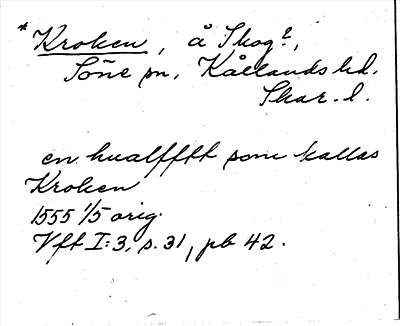 * Kroken, å Skog?,
Söne sn, Kållands hd.
Skar. l.
en hualfftt som kallas
Kroken
1555 1/5 orig.
Vft I:3, s. 31, pb 42.